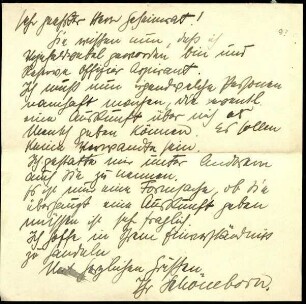 Sehr geehrter Herr Geheimrat!
Sie wissen nun, daß ich
geworden bin und
Reserve Offizier Aspirant.
Ich muß nun irgendwelche Personen
namhaft machen, die eventl.
eine Auskunft über mich
geben können. Es sollen
keine Verwandte sein.
Ich gestatte mir unter Anderem
auch Sie zu nennen.
Es ist nur eine Formsache, ob Sie
überhaupt eine Auskunft geben
müssen ist sehr fraglich.
Ich hoffe in Ihrem Einverständnis
zu handeln
Mit herzlichen Grüssen
Ihr Schöneborn.